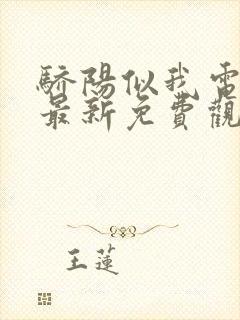 驕陽似我電
最新免費觀
王蓮